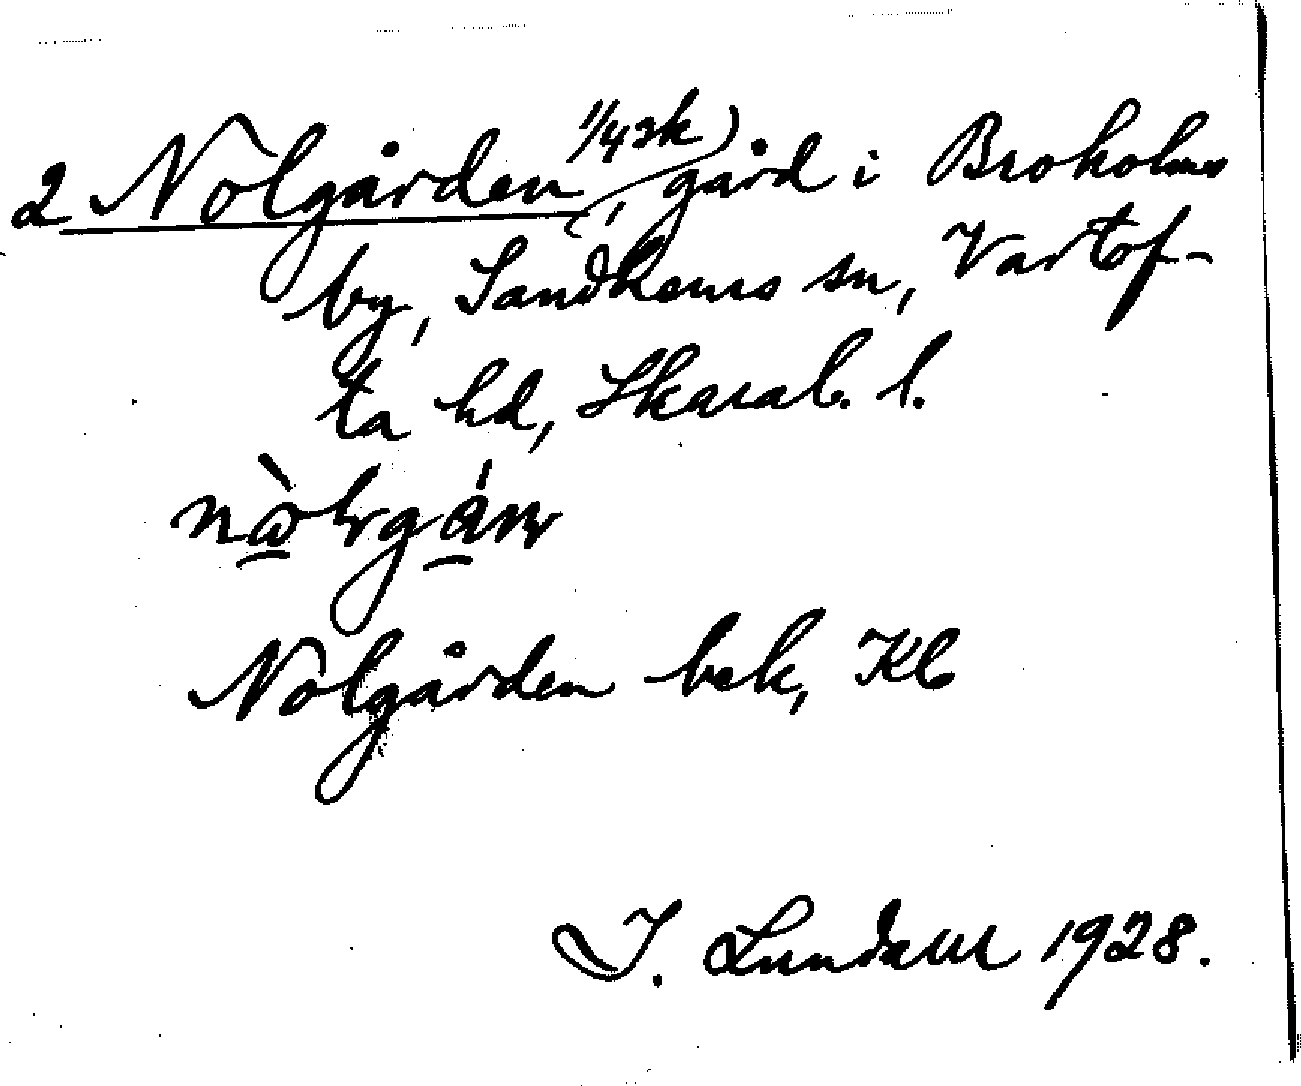 2 Nolgården, (1/4 sk) gård i Broholms
by, Sandhems sn, Vartof-
ta hd, Skarab. l.
Nolgården bek, Kb
I. Lundahl 1928.